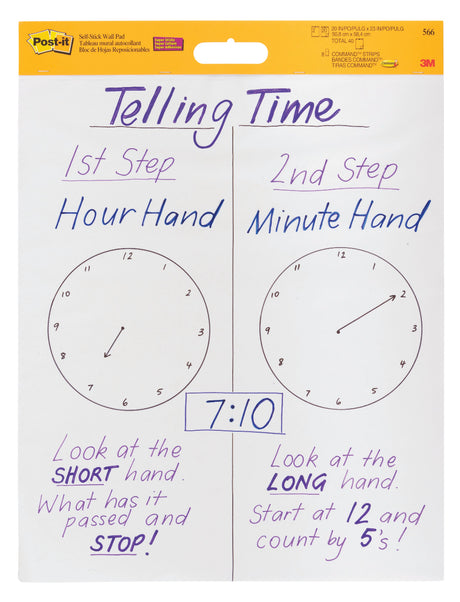 Post-it
Self-Stick Wall Pad
Tableau mural autocollant
Bloc de Hojas Reposicionables
Super Sticky
Super Collant
Super Adhesivas
20 IN/PO/PULG x 23 IN/PO/PULG
50,8 cm x 58,4 cm
TOTAL 40
8 COMMAND™ STRIPS
BANDES COMMAND™
TIRAS COMMAND™
566
3M
Telling Time
1st Step
2nd Step
Hour Hand
Minute Hand
12
11
1
10
2
9
3
8
4
7
5
6
12
11
1
10
2
9
3
8
4
7
5
6
7:10
Look at the
SHORT hand.
What has it
passed and
STOP!
Look at the
LONG hand.
Start at 12 and
count by 5's!